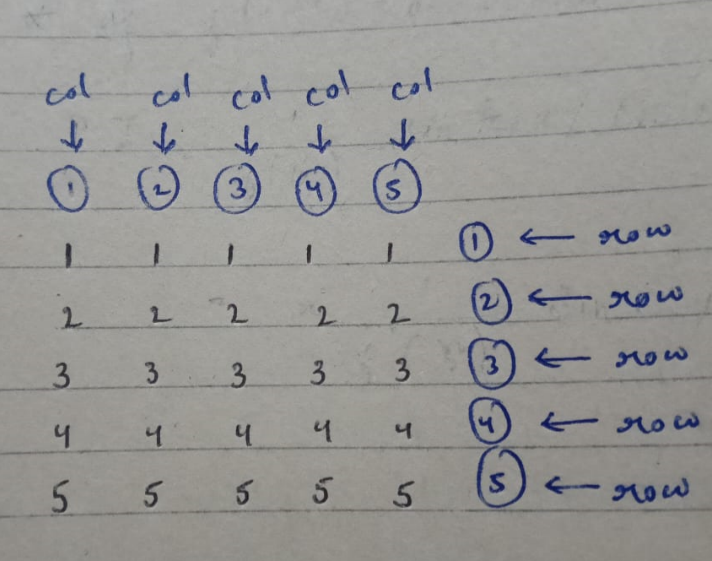 col col col col col
↓ ↓ ↓ ↓ ↓
① ② ③ ④ ⑤
1 1 1 1 1 ① ← row
2 2 2 2 2 ② ← row
3 3 3 3 3 ③ ← row
4 4 4 4 4 ④ ← row
5 5 5 5 5 ⑤ ← row